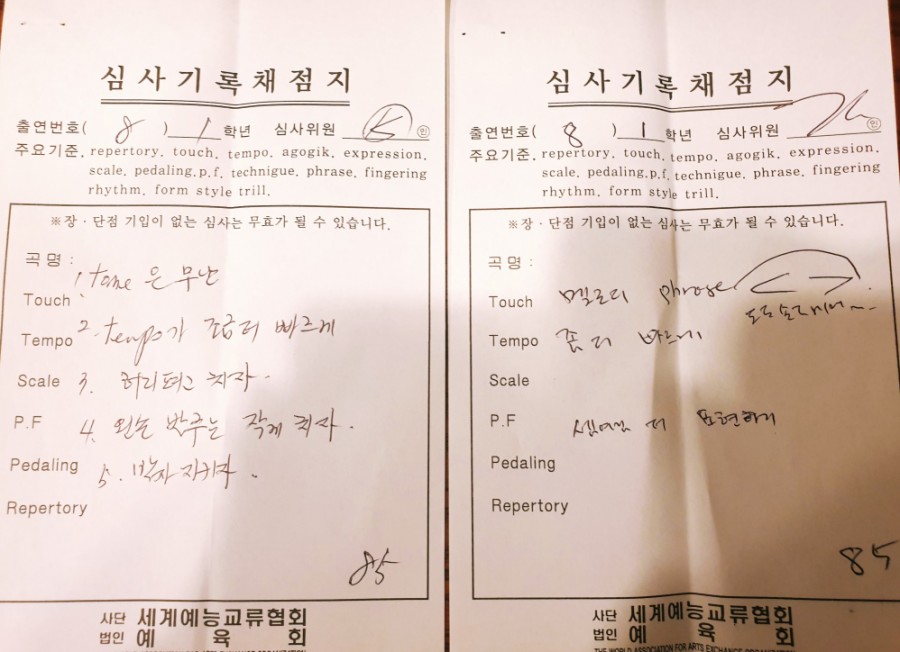 심사기록채점지
출연번호( 8 ) 1 학년 심사위원 인
주요기준. repertory. touch. tempo. agogik. expression.
scale. pedaling.p.f. technigue. phrase. fingering
rhythm. form style trill.
※장·단점 기입이 없는 심사는 무효가 될 수 있습니다.
곡명 :
1. tone 은 무난
Touch
Tempo 2. tempo가 조금더 빠르게
Scale 3. 허리펴고 치자.
P.F 4. 왼손 반주는 작게 치자.
Pedaling 5. 박자 지키자.
Repertory
85
사단 세계예능교류협회
법인 예육회
심사기록채점지
출연번호( 8 ) 1 학년 심사위원 인
주요기준. repertory. touch. tempo. agogik. expression.
scale. pedaling.p.f. technigue. phrase. fingering
rhythm. form style trill.
※장·단점 기입이 없는 심사는 무효가 될 수 있습니다.
곡명 :
Touch 멜로디 phrase
Tempo 좀 더 빠르게
Scale
P.F 셈여림 더 표현하기
Pedaling
Repertory
85
사단 세계예능교류협회
법인 예육회
THE WORLD ASSOCIATION FOR ARTS EXCHANGE ORGANIZATION